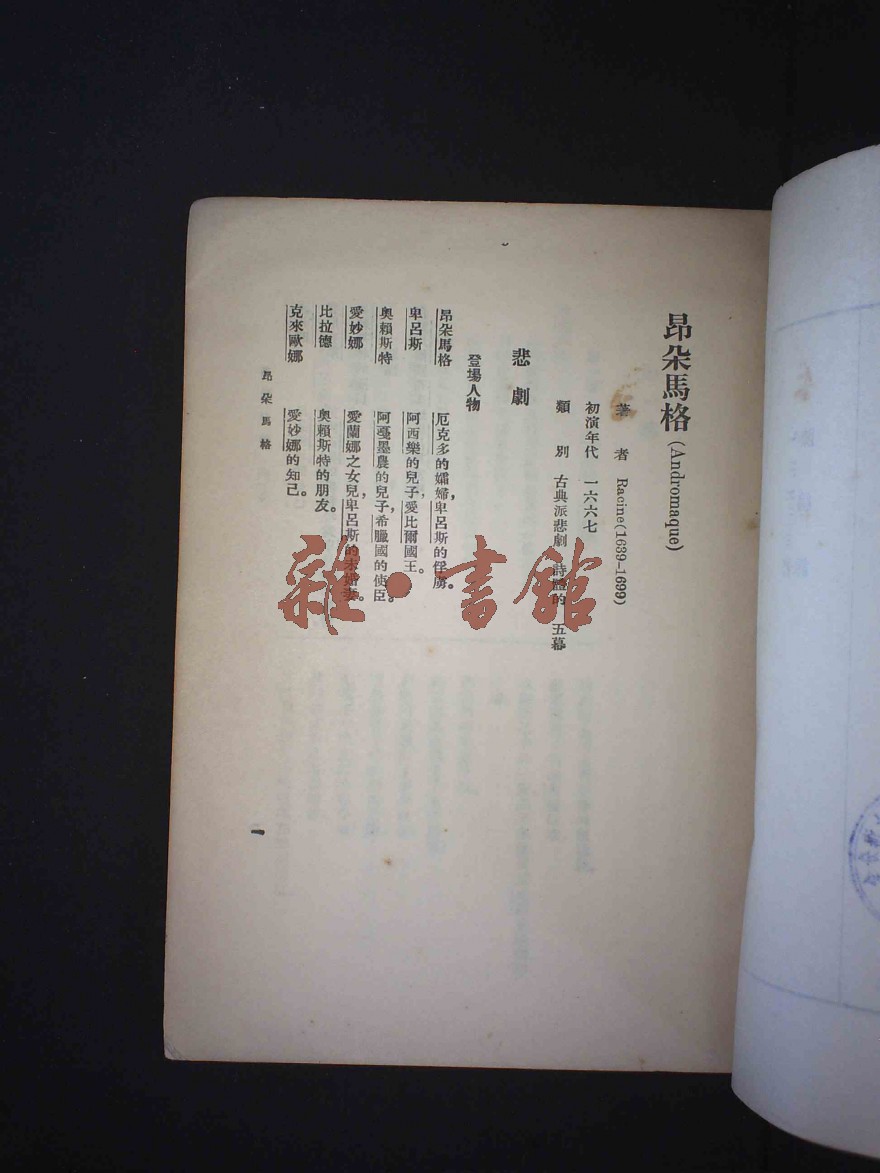 昂朵馬格(Andromaque)
著者 Racine(1639–1699)
初演年代 一六六七
類別 古典派悲劇 詩體的 五幕
悲劇
登場人物
昂朵馬格 厄克多的孀婦，卑呂斯的俘虜。
卑呂斯 阿西樂的兒子，愛比爾國王。
奧賴斯特 阿戞墨農的兒子，希臘國的使臣。
愛妙娜 愛蘭娜之女兒，卑呂斯的未婚妻。
比拉德 奧賴斯特的朋友。
克來歐娜 愛妙娜的知己。
昂朵馬格
一
雜·書館